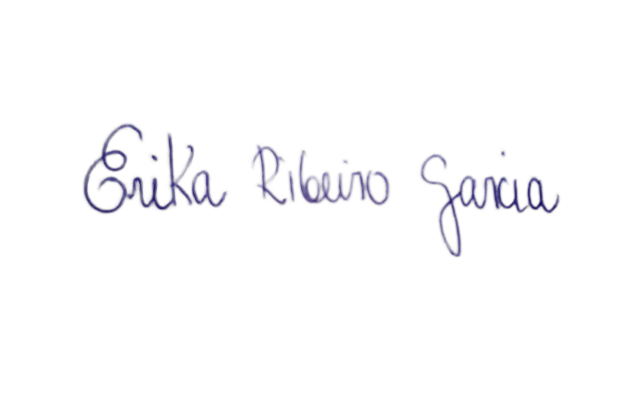 Erika Ribeiro Garcia